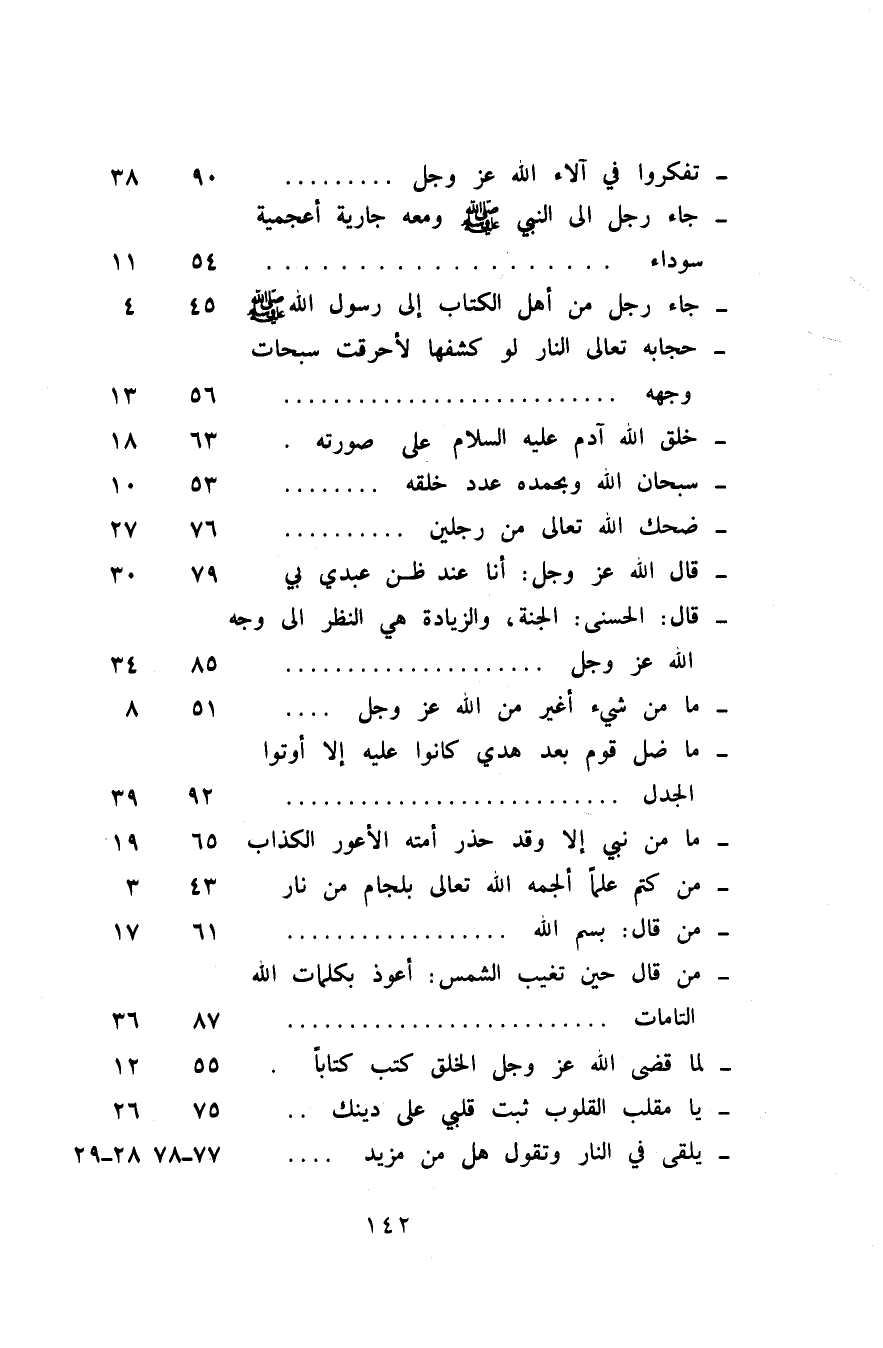 - تفكروا في آلاء الله عز وجل ......... ٩٠ ٣٨
- جاء رجل الى النبي ﷺ ومعه جارية أعجمية
سوداء ................... ٥٤ ١١
- جاء رجل من أهل الكتاب إلى رسول الله ﷺ ٤٥ ٤
- حجابه تعالى النار لو كشفها لأحرقت سبحات
وجهه ........................... ٥٦ ١٣
- خلق الله آدم عليه السلام على صورته . ٦٣ ١٨
- سبحان الله وبحمده عدد خلقه ........ ٥٣ ١٠
- ضحك الله تعالى من رجلين .......... ٧٦ ٢٧
- قال الله عز وجل: أنا عند ظن عبدي بي ٧٩ ٣٠
- قال: الحسنى: الجنة، والزيادة هي النظر الى وجه
الله عز وجل ..................... ٨٥ ٣٤
- ما من شيء أغير من الله عز وجل .... ٥١ ٨
- ما ضل قوم بعد هدي كانوا عليه إلا أوتوا
الجدل ........................... ٩٢ ٣٩
- ما من نبي إلا وقد حذر أمته الأعور الكذاب ٦٥ ١٩
- من كتم علماً ألجمه الله تعالى بلجام من نار ٤٣ ٣
- من قال: بسم الله .................. ٦١ ١٧
- من قال حين تغيب الشمس: أعوذ بكلمات الله
التامات .......................... ٨٧ ٣٦
- لما قضى الله عز وجل الخلق كتب كتاباً . ٥٥ ١٢
- يا مقلب القلوب ثبت قلبي على دينك .. ٧٥ ٢٦
- يلقى في النار وتقول هل من مزيد .... ٧٧-٧٨ ٢٨-٢٩
١٤٢